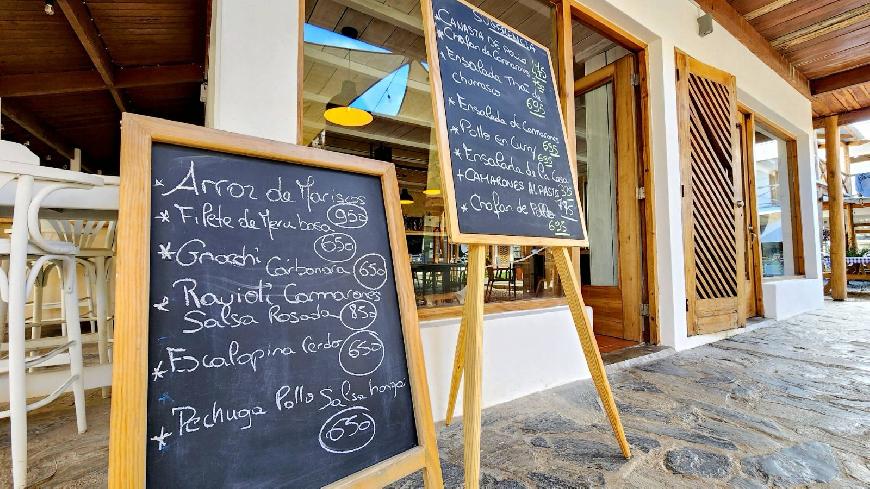 * Arroz de Mariscos
950
* Filete de Meru basa
650
* Gnocchi Carbonara 650
* Ravioti Camarones
Salsa Rosada 850
* Escalopina Cerdo 650
* Pechuga Pollo Salsa hongo
650
SUGERENCIA
* CANASTA DE POLLO
* Chofan de Camarones
* Ensalada Thai de
churrasco 695
* Ensalada de Camarones
695
* Pollo en Curry 695
* Ensalada de la Casa
+ CAMARONES AL PASTO 795
* Chofan de Pollo
695